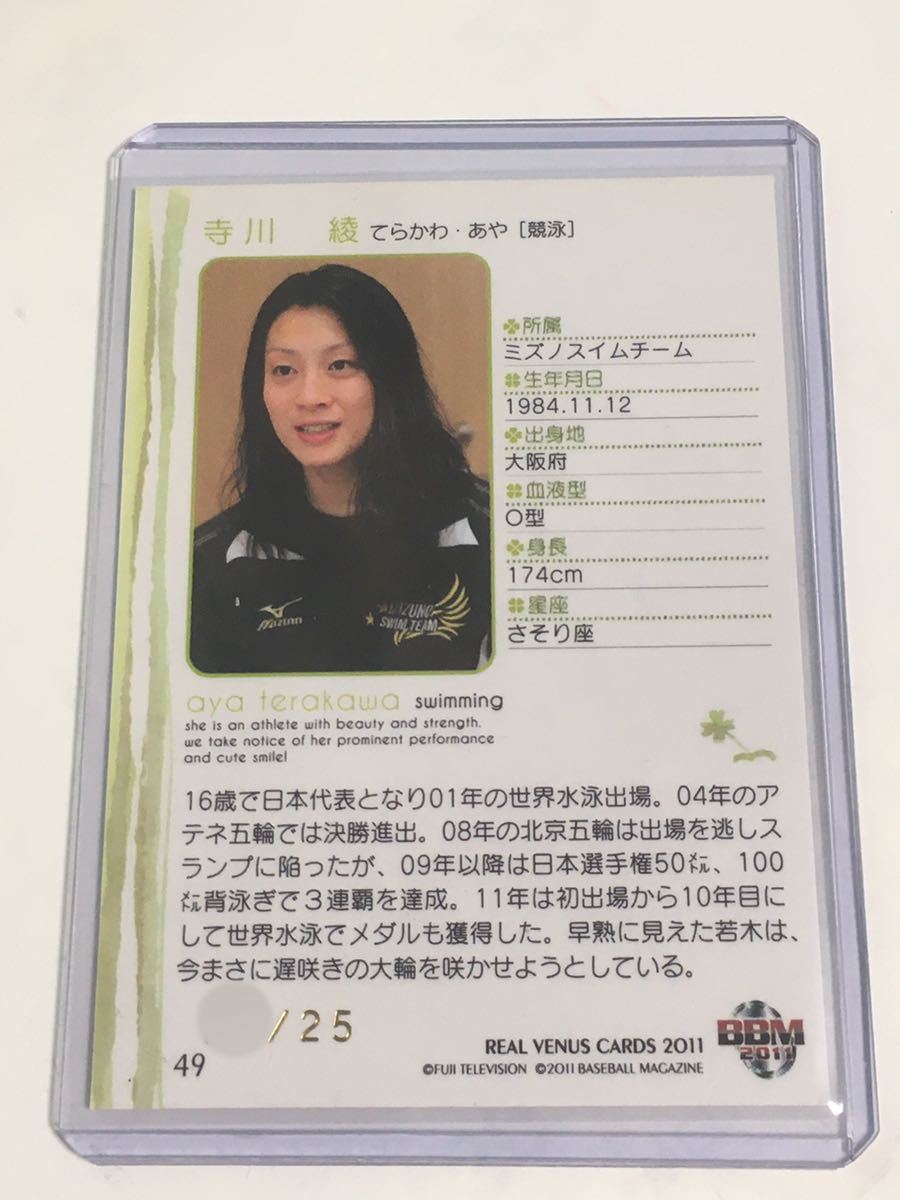 寺川 綾 てらかわ・あや [競泳]
所属
ミズノスイムチーム
生年月日
1984.11.12
出身地
大阪府
血液型
O型
身長
174cm
星座
さそり座
Mizuno
MIZUNO
SWIM TEAM
aya terakawa swimming
she is an athlete with beauty and strength.
we take notice of her prominent performance
and cute smile!
16歳で日本代表となり01年の世界水泳出場。04年のア
テネ五輪では決勝進出。08年の北京五輪は出場を逃しス
ランプに陥ったが、09年以降は日本選手権50㍍、100
㍍背泳ぎで3連覇を達成。11年は初出場から10年目に
して世界水泳でメダルも獲得した。早熟に見えた若木は、
今まさに遅咲きの大輪を咲かせようとしている。
/25
49
REAL VENUS CARDS 2011
©FUJI TELEVISION ©2011 BASEBALL MAGAZINE
BBM
2011